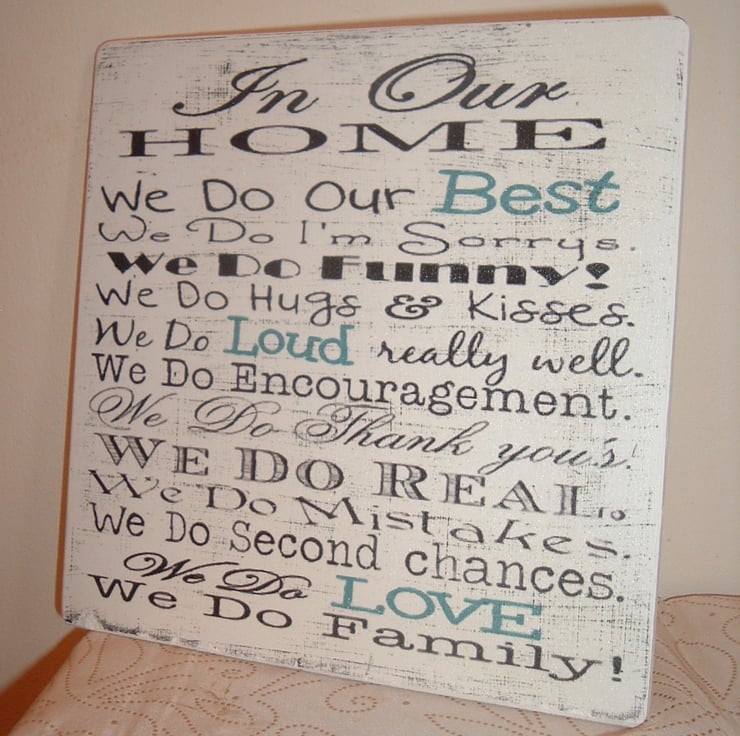 In Our
HOME
We Do Our Best
We Do I'm Sorrys.
We Do Funny!
We Do Hugs & Kisses.
We Do Loud really well.
We Do Encouragement.
We Do Thank you's!
WE DO REAL.
We Do Mistakes.
We Do Second chances.
We Do LOVE
We Do Family!